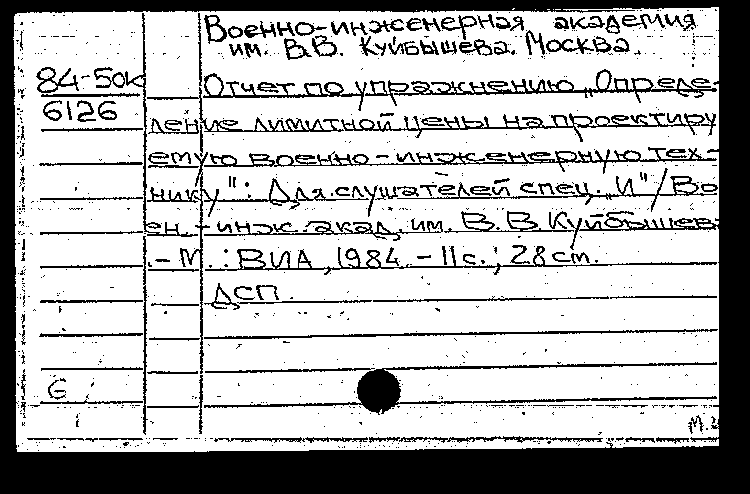 Военно-инженерная академия
им. В.В. Куйбышева. Москва.
84-50к Отчет по упражнению „Опреде-
6126 ление лимитной цены на проектиру
емую военно-инженерную тех-
нику": Для слушателей спец. „И"/Во
ен.-инж. акад. им. В.В. Куйбышев
.- М.: ВИА, 1984 - 11 с.; 28 cm.
ДСП.
6
М.